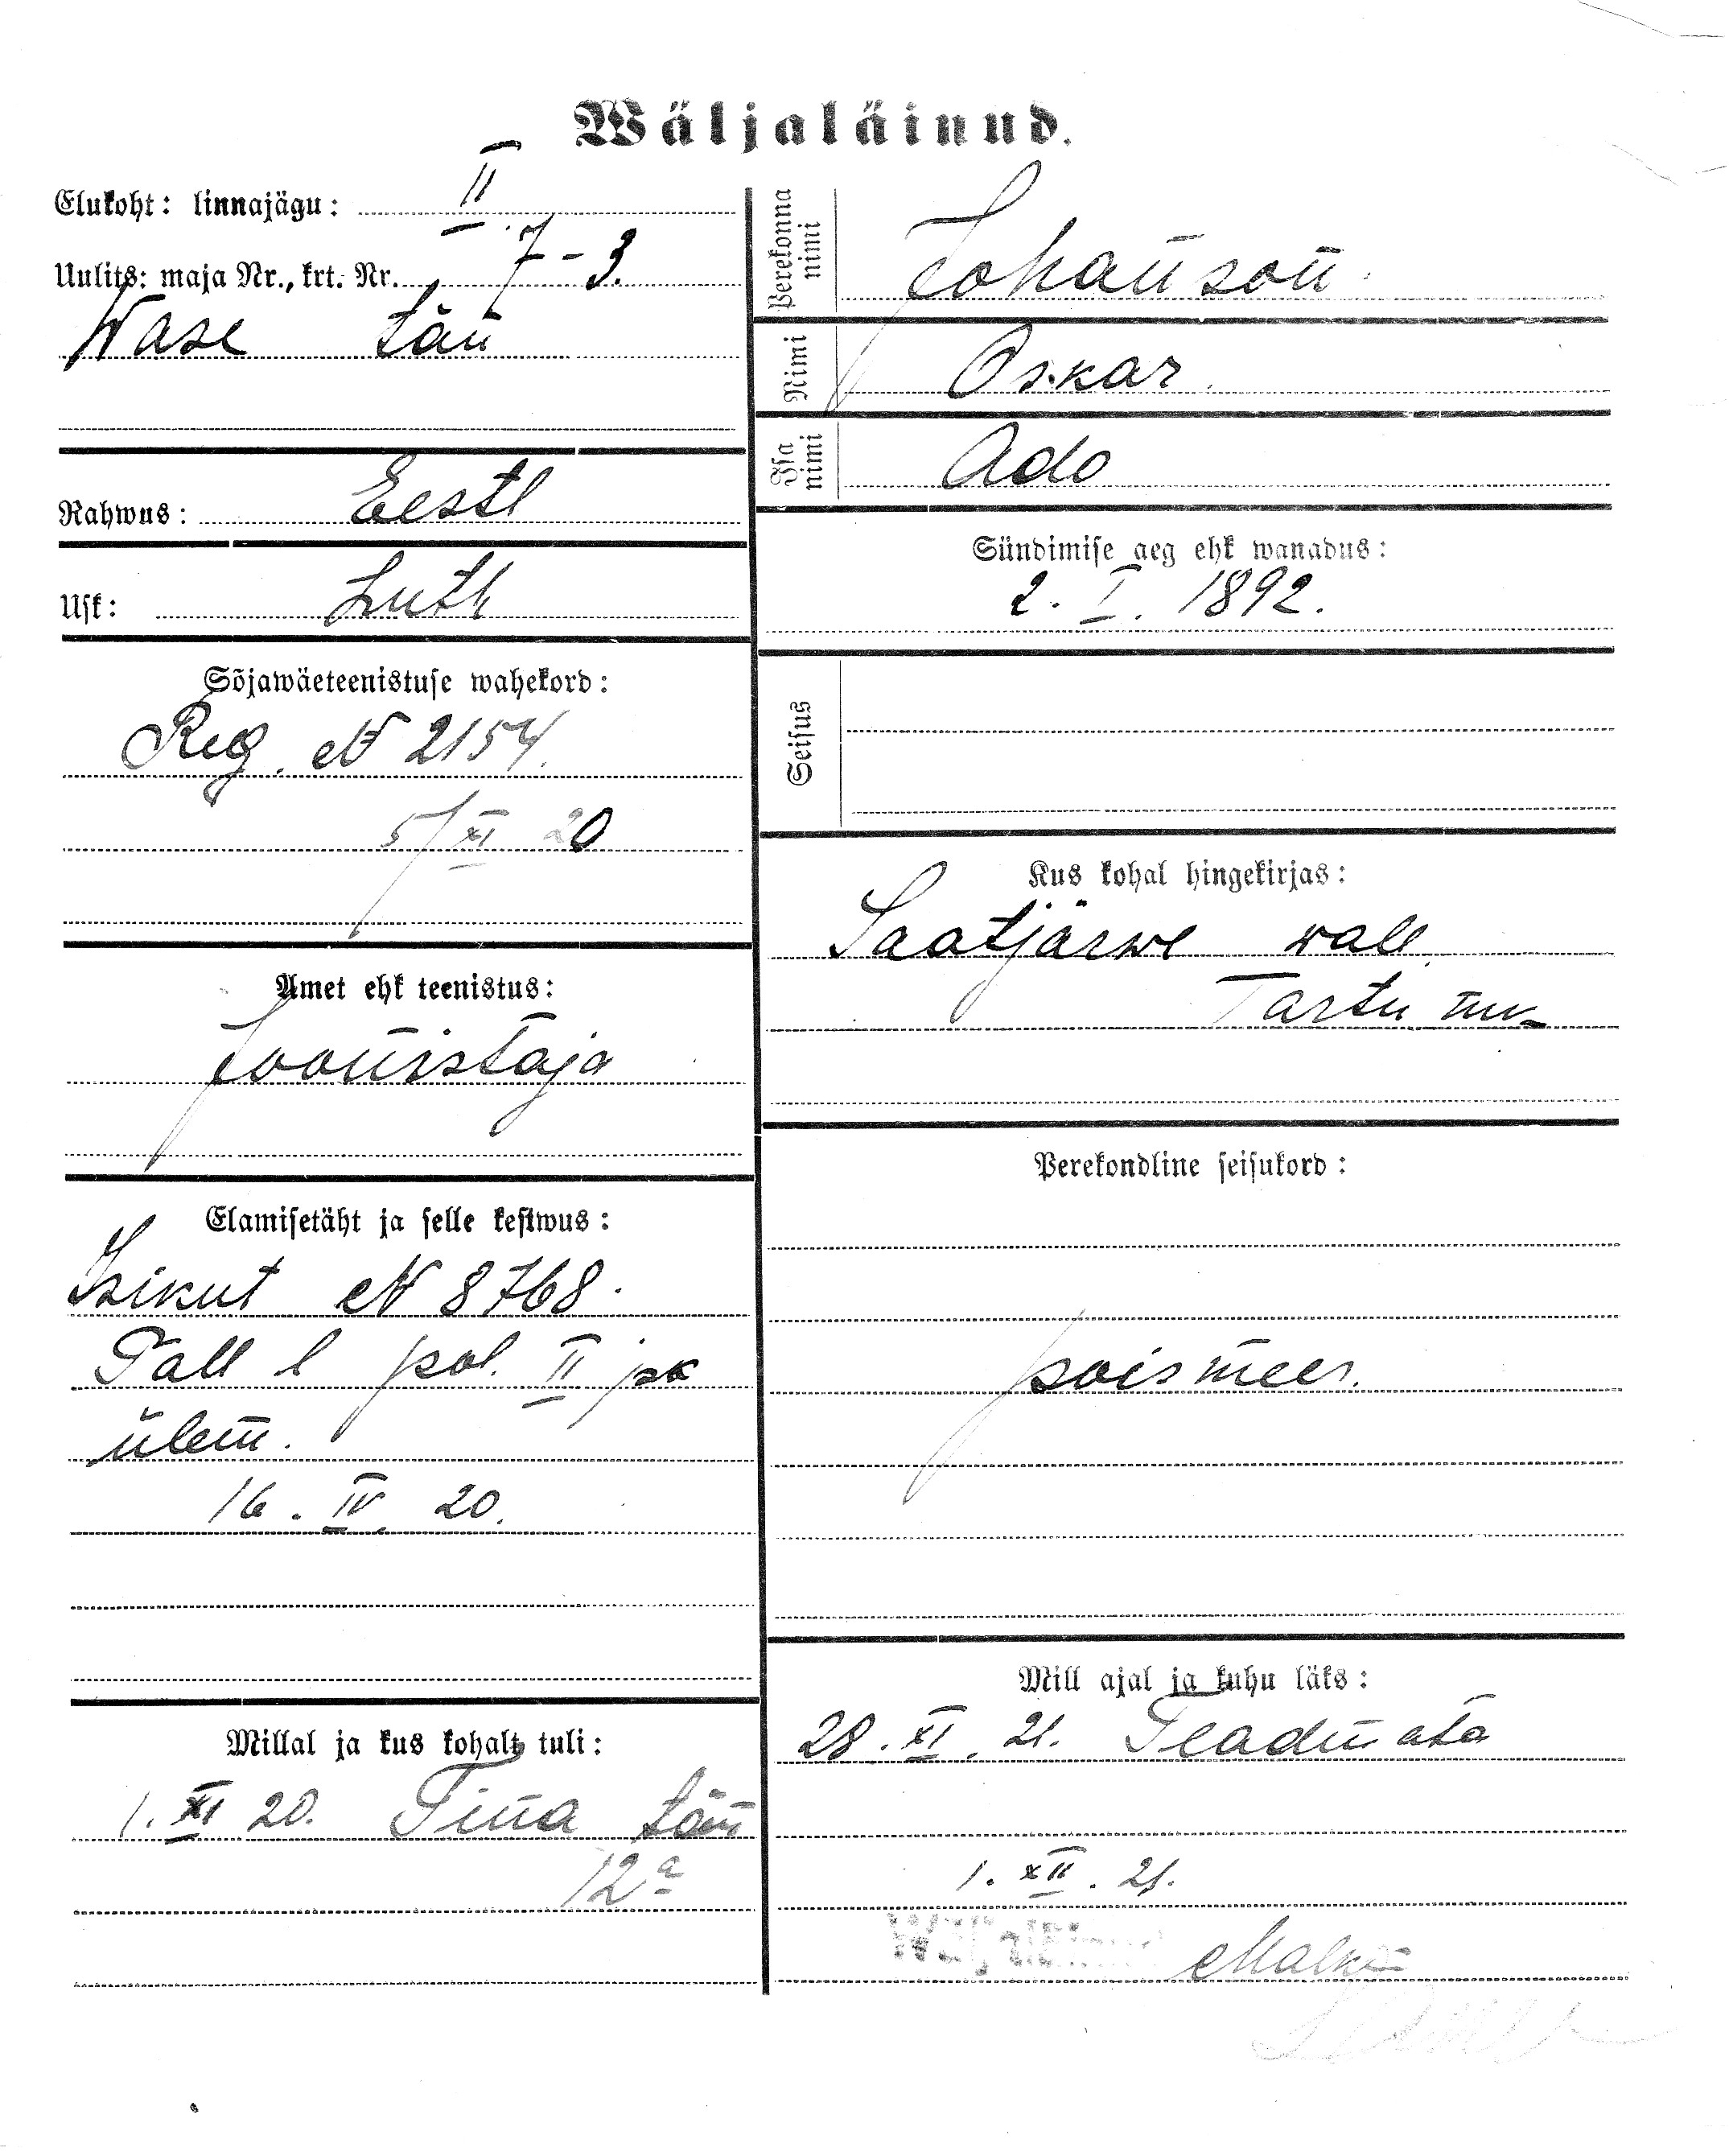 Wäljaläinud.
Elukoht: linnajägu: II
Uulits: maja Nr., krt. Nr. 7-3.
Wase tän
Rahwus: Eestl
Usk: Luth
Sõjawäeteenistuse wahekord:
Reg. № 2154.
5/XI 20
Amet ehk teenistus:
Joonistaja
Elamisetäht ja selle kestwus:
Isikut № 8768.
Tall l pol. II jsk
ülem.
16. IV. 20.
Millal ja kus kohalt tuli:
1. XI 20. Tina tän
12a
Perekonna nimi Johanson.
Nimi Oskar.
Isa nimi Ado
Sündimise aeg ehk wanadus:
2. I. 1892.
Seisus
Kus kohal hingekirjas:
Saatjärwe wall.
Tartu m-
Perekondline seisukord:
poismees.
Mill ajal ja kuhu läks:
28. XI. 21. Teadmata
1. XII. 21.
Wäljaläinud